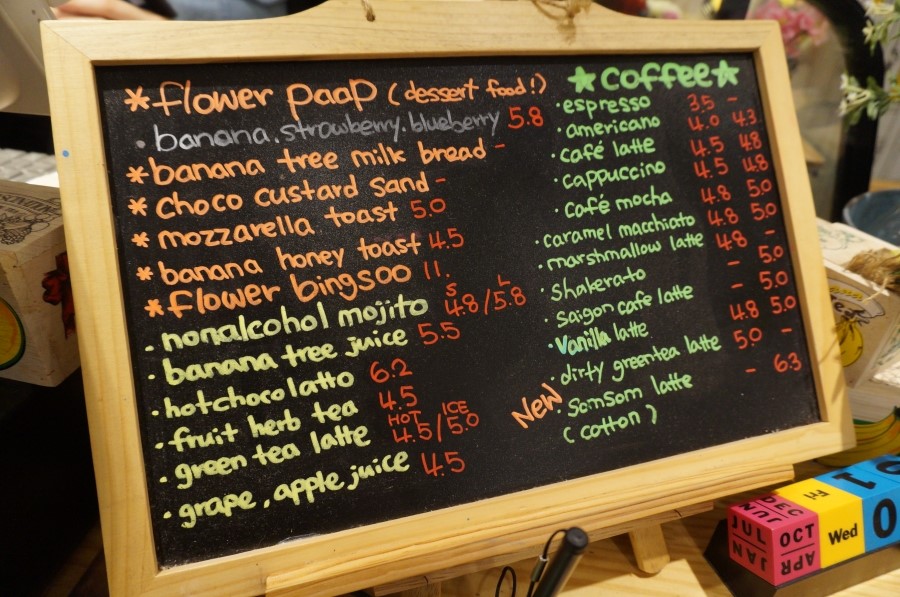 *flower paap (dessert food!)
·banana.strawberry.blueberry 5.8
*banana tree milk bread -
*choco custard sand -
*mozzarella toast 5.0
*banana honey toast 4.5
*flower bingsoo 11.
S L
·nonalcohol mojito 4.8/5.8
·banana tree juice 5.5
·hotchocolatto 6.2
·fruit herb tea 4.5
HOT ICE
·green tea latte 4.5/5.0
·grape, apple juice 4.5
★coffee★
·espresso 3.5 -
·americano 4.0 4.3
·café latte 4.5 4.8
·cappuccino 4.5 4.8
·café mocha 4.8 5.0
·caramel macchiato 4.8 5.0
·marshmallow latte 4.8 -
·Shakerato - 5.0
·saigon cafe latte - 5.0
·Vanilla latte 4.8 5.0
·dirty greentea latte 5.0 -
New ·Somsom latte - 6.3
(cotton)
DEC
JUN
JUL
JAN
OCT
APR
Fri
Wed
1
0